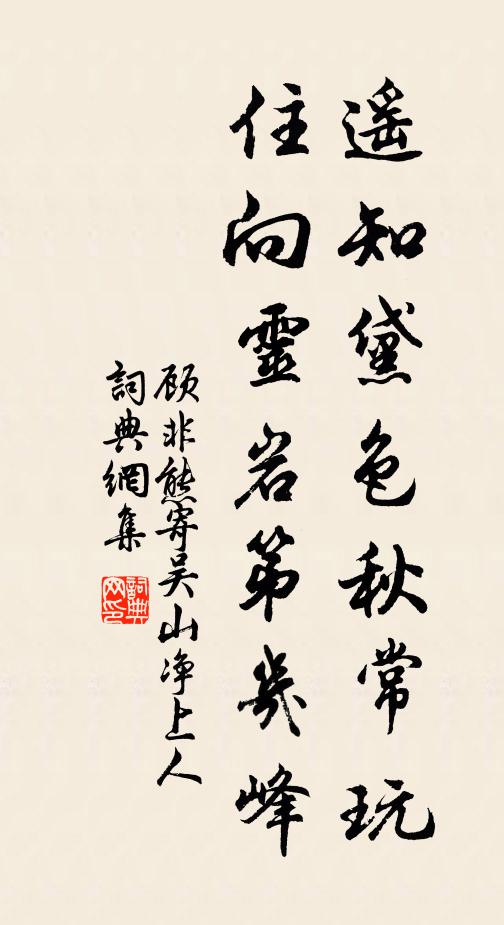 遥知黛色秋常玩
住向靈岩第幾峰
顾非熊寄吴山净上人
詞典網集
詞典网印